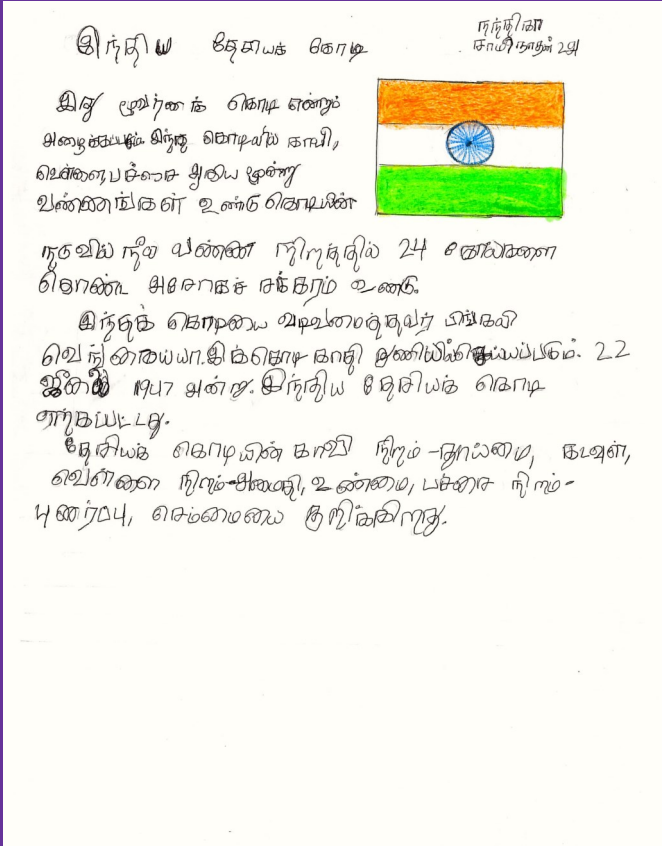 இந்திய தேசியக் கொடி
நந்திகா
சாமிநாதன் 2ஆ
இது மூவர்ணக் கொடி என்றும்
அழைக்கப்படும் இந்த கொடியில் காவி,
வெள்ளை பச்சை ஆகிய மூன்று
வண்ணங்கள் உண்டு கொடியின்
நடுவில் நீல வண்ண நிறத்தில் 24 கோல்களை
கொண்ட அசோகச் சக்கரம் உண்டு.
இந்தக் கொடியை வடிவமைத்தவர் பிங்கலி
வெங்கையா. இக்கொடி காதி துணியில் செய்யப்படும். 22
ஜீலை 1947 அன்று. இந்திய தேசியக் கொடி
ஏற்கப்பட்டது.
தேசியக் கொடியின் காவி நிறம் - தூய்மை, கடவுள்,
வெள்ளை நிறம்-அமைதி, உண்மை, பச்சை நிறம்-
புணர்ப்பு, செம்மையை குறிக்கிறது.